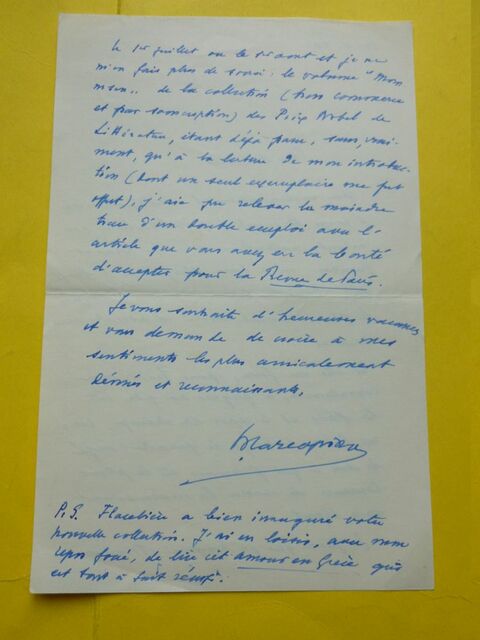 le 1er juillet ou le 1er août et je ne
m'en fais plus de souci : le volume "Mom
msen" de la collection (hors commerce
et par souscription) des Prix Nobel de
Littérature, étant déjà paru, sans, vrai-
ment, qu'à la lecture de mon introduc-
tion (dont un seul exemplaire me fut
offert), j'aie pu relever la moindre
trace d'un double emploi avec l'
article que vous avez eu la bonté
d'accepter pour la Revue de Paris.
Je vous souhaite d'heureuses vacances
et vous demande de croire à mes
sentiments les plus amicalement
dévoués et reconnaissants.
P.S. Flacelière a bien inauguré votre
nouvelle collection. J'ai eu loisir, avec mon
repos forcé, de lire cet amour en Grèce qui
est tout à fait réussi.